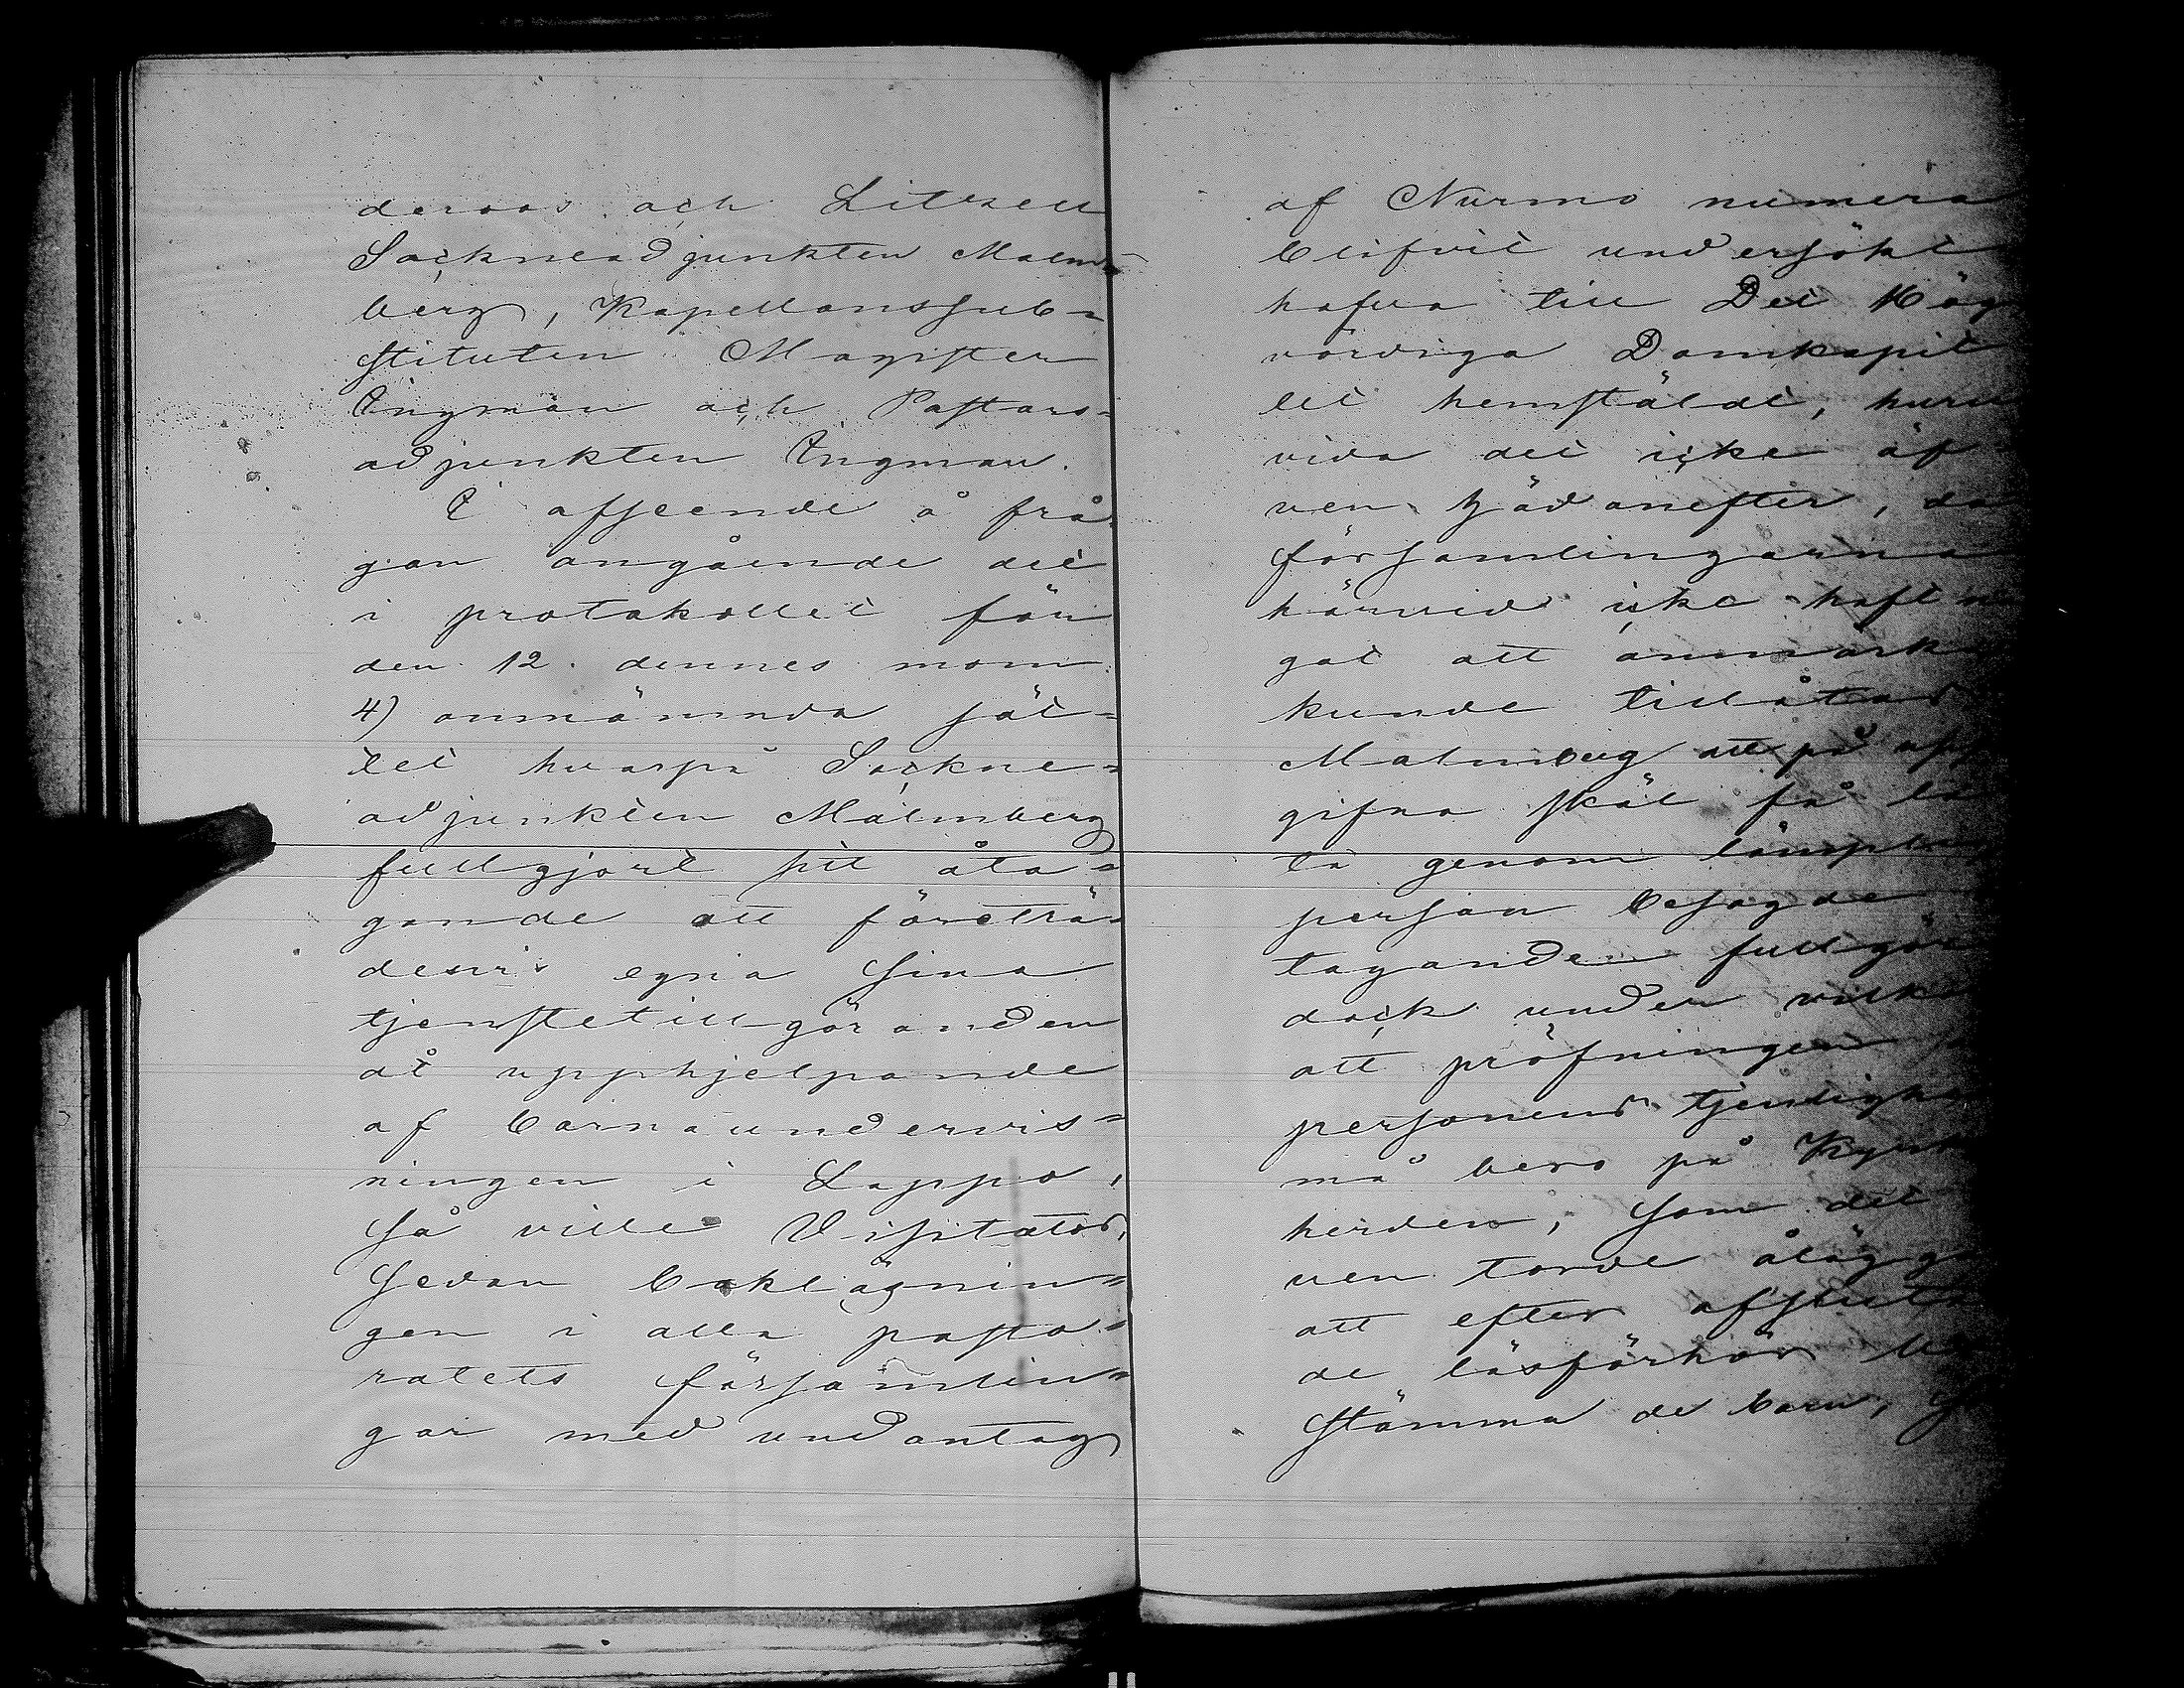 deroos och Litzen
Sockneadjunkten Malm-
berg, Kapellanssub-
stituten Magister
Ingman och Pastors-
adjunkten Ingman.
I afseende å frå
gan angående det
i protokollet för
den 12. dennes mom
4) anmämnda sät-
tet hvarpå Sockne-
adjunkten Malmberg
fullgjort sit åta-
gande att företrä-
desvis egna sina
tjenstetillgöranden
åt upphjelpande
af barnaundervis-
ningen i Lappo,
så ville Visitator,
sedan beklagnin-
gen i alla pasto-
ratets församlin-
gar med undantag
af Nurmo numera
blifvit undersökt
hafva till Det Hög
vördiga Domkapit
let hemstäldt, huru
vida det icke äf-
ven hädanefter, då
församlingarna
härvid icke haft n
got att anmärka
kunde tillåtas
Malmberg att på upp
gifna skäl få lå
ta genom lämplig
person besagde
taganden fullgör
dock under vilkor
att pröfningen
personens tjenligh
må bero på Kyrko
herden, som det
ven torde åligga
att efter afslut
de läsförhör
stämma de barn, so